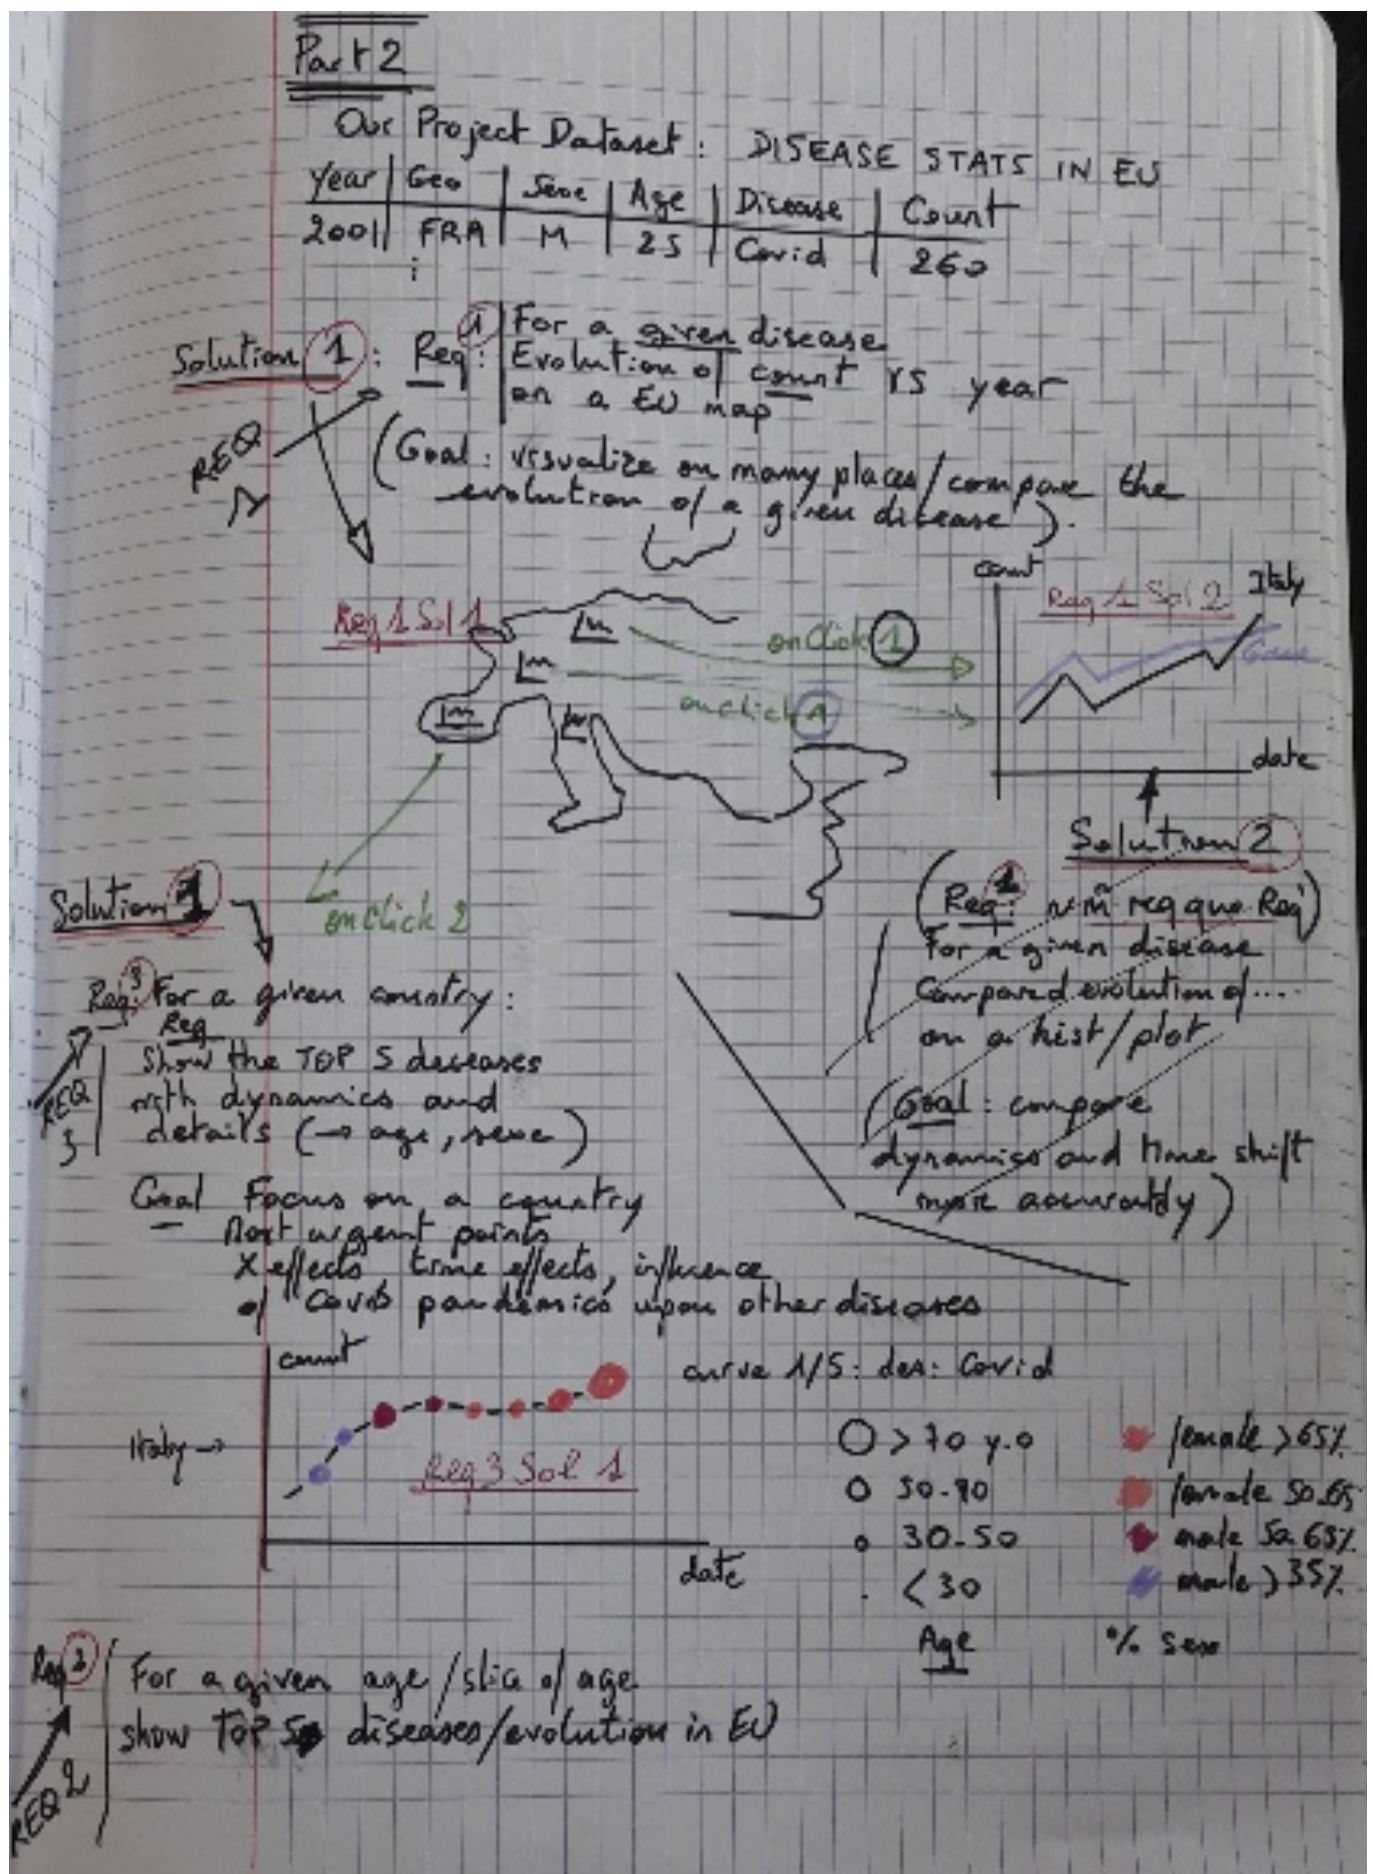 Part 2
Our Project Dataset : DISEASE STATS IN EU
Year | Geo | Sexe | Age | Disease | Count
2001 | FRA | M | 25 | Covid | 260
Solution 1 : Req 1 : For a given disease
Evolution of count vs year
on a EU map
REQ 1
(Goal : visualize on many places/compare the
evolution of a given disease).
Req 1 Sol 1
onClick 1
onClick 1
onClick 2
count
Req 1 Sol 2
Italy
date
Solution 2
(Req 1 : ~ m̃ req que Req)
For a given disease
Compared evolution of ....
on a hist/plot
(Goal : compare
dynamics and time shift
more accurately)
Solution 1
Req 3 For a given country :
Req
Show the TOP 5 deceases
with dynamics and
details (→ age, sexe)
REQ 3
Goal Focus on a country
Most urgent points
X effects time effects, influence
of Covid pandemics upon other diseases
count
curve 1/5 : des : Covid
Italy →
Req 3 Sol 1
date
> 70 y.o
30-50
< 30
Age
female > 65%
female 50-65
male 50-65%
male > 35%
% sexe
Req 2 For a given age/slice of age
show TOP 5 diseases/evolution in EU
REQ 2